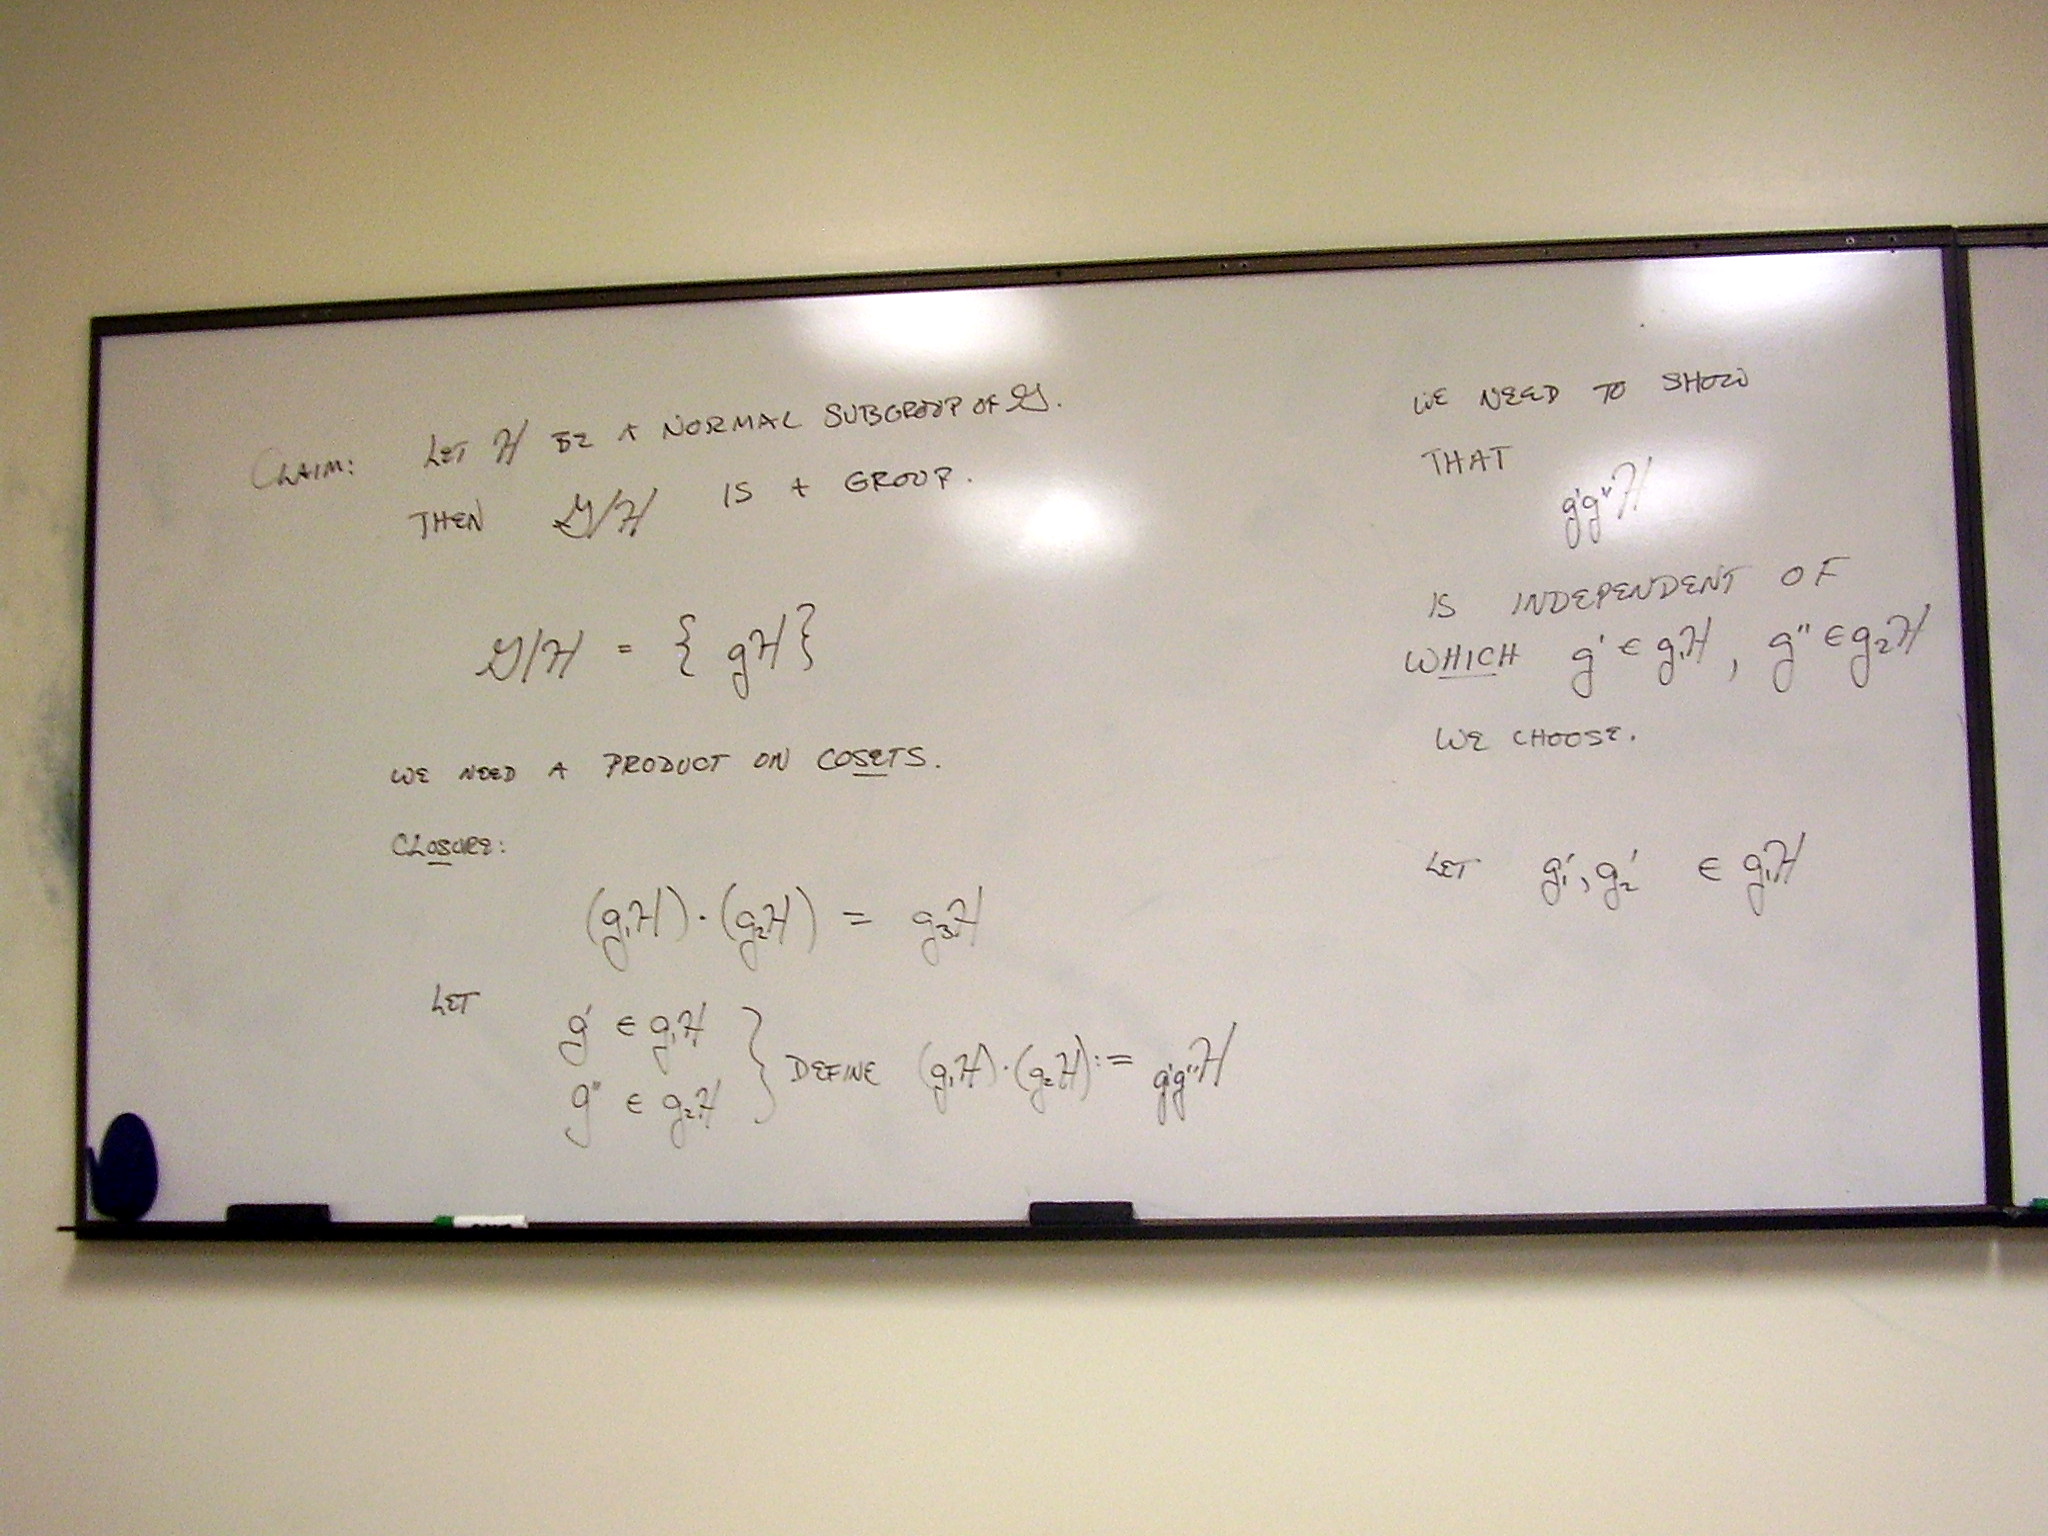 CLAIM: LET H BE A NORMAL SUBGROUP OF G.
THEN G/H IS A GROUP.
G/H = { gH }
WE NEED A PRODUCT ON COSETS.
CLOSURE:
(g₁H)·(g₂H) = g₃H
LET g' ∈ g₁H
g'' ∈ g₂H } DEFINE (g₁H)·(g₂H) := g'g''H
WE NEED TO SHOW
THAT
g'g''H
IS INDEPENDENT OF
WHICH g' ∈ g₁H, g'' ∈ g₂H
WE CHOOSE.
LET g₁', g₂' ∈ g₁H